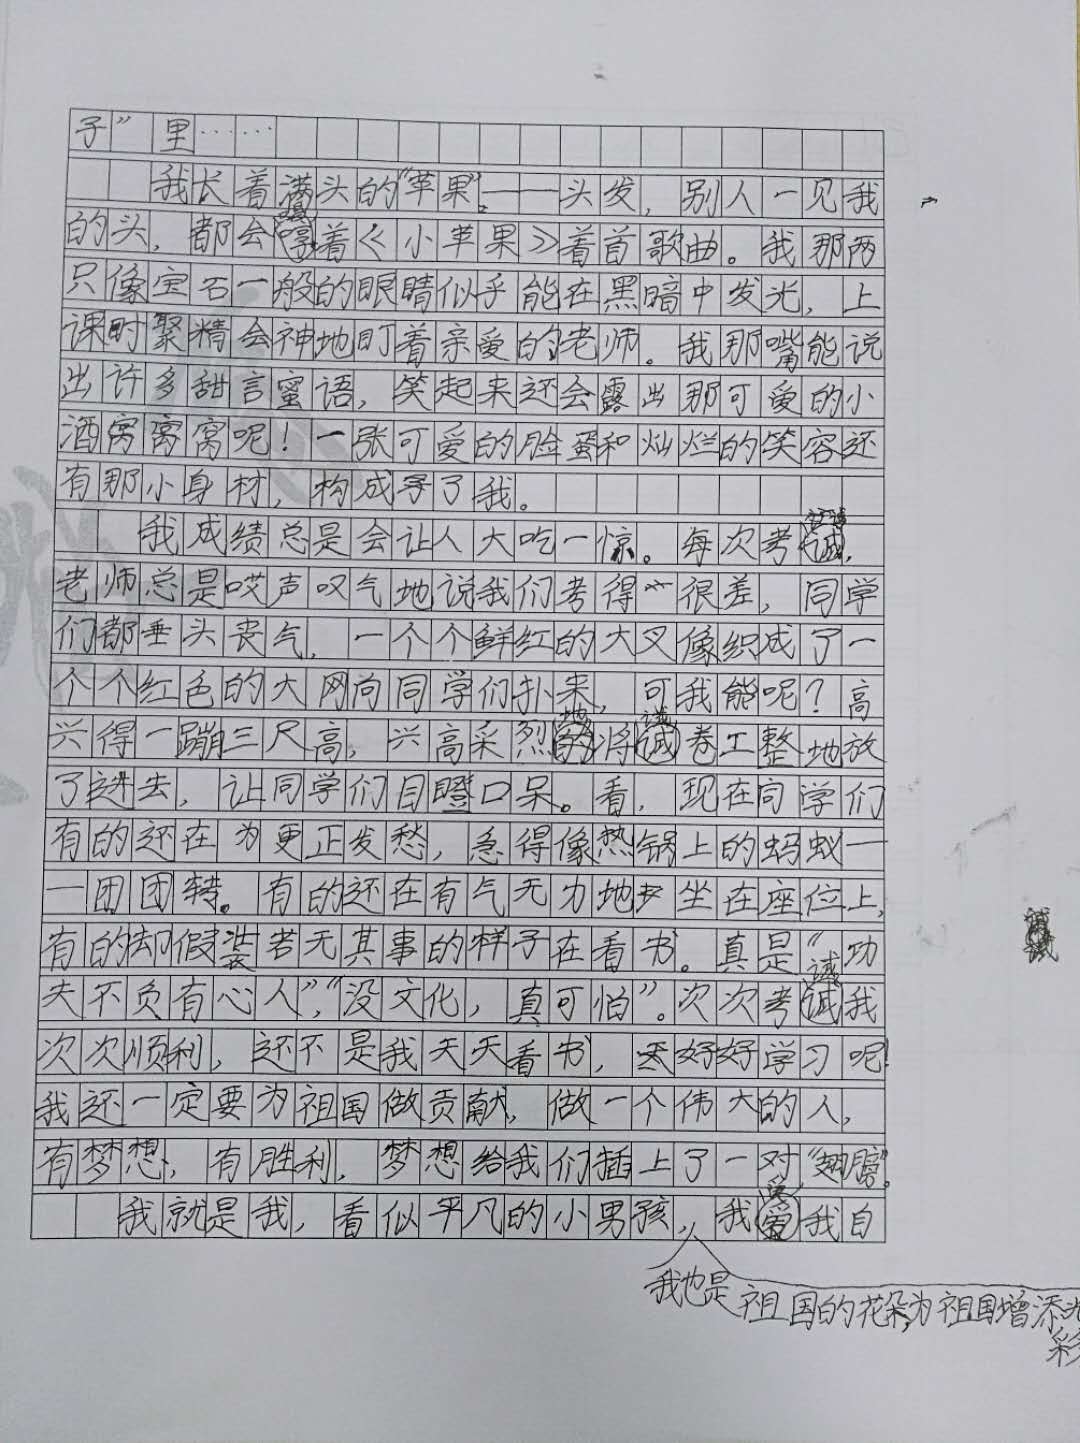 子”里……
我长着满头的“苹果”——头发，别人一见我
的头，都会哼着《小苹果》着首歌曲。我那两
只像宝石一般的眼睛似乎能在黑暗中发光，上
课时聚精会神地盯着亲爱的老师。我那嘴能说
出许多甜言蜜语，笑起来还会露出那可爱的小
酒窝窝窝呢！一张可爱的脸蛋和灿烂的笑容还
有那小身材，构成了我。
我成绩总是会让人大吃一惊。每次考试，
老师总是哎声叹气地说我们考得很差，同学
们都垂头丧气，一个个鲜红的大叉像织成了一
个个红色的大网向同学们扑来，可我能呢？高
兴得一蹦三尺高，兴高采烈地将试卷工整地放
了进去，让同学们目瞪口呆。看，现在同学们
有的还在为更正发愁，急得像热锅上的蚂蚁—
—团团转。有的还在有气无力地坐在座位上，
有的却假装若无其事的样子在看书。真是“功
夫不负有心人”，“没文化，真可怕”。次次考试我
次次顺利，还不是我天天看书，好好学习呢！
我还一定要为祖国做贡献，做一个伟大的人，
有梦想，有胜利，梦想给我们插上了一对“翅膀”。
我就是我，看似平凡的小男孩，我爱我自
我也是祖国的花朵，为祖国增添光
彩